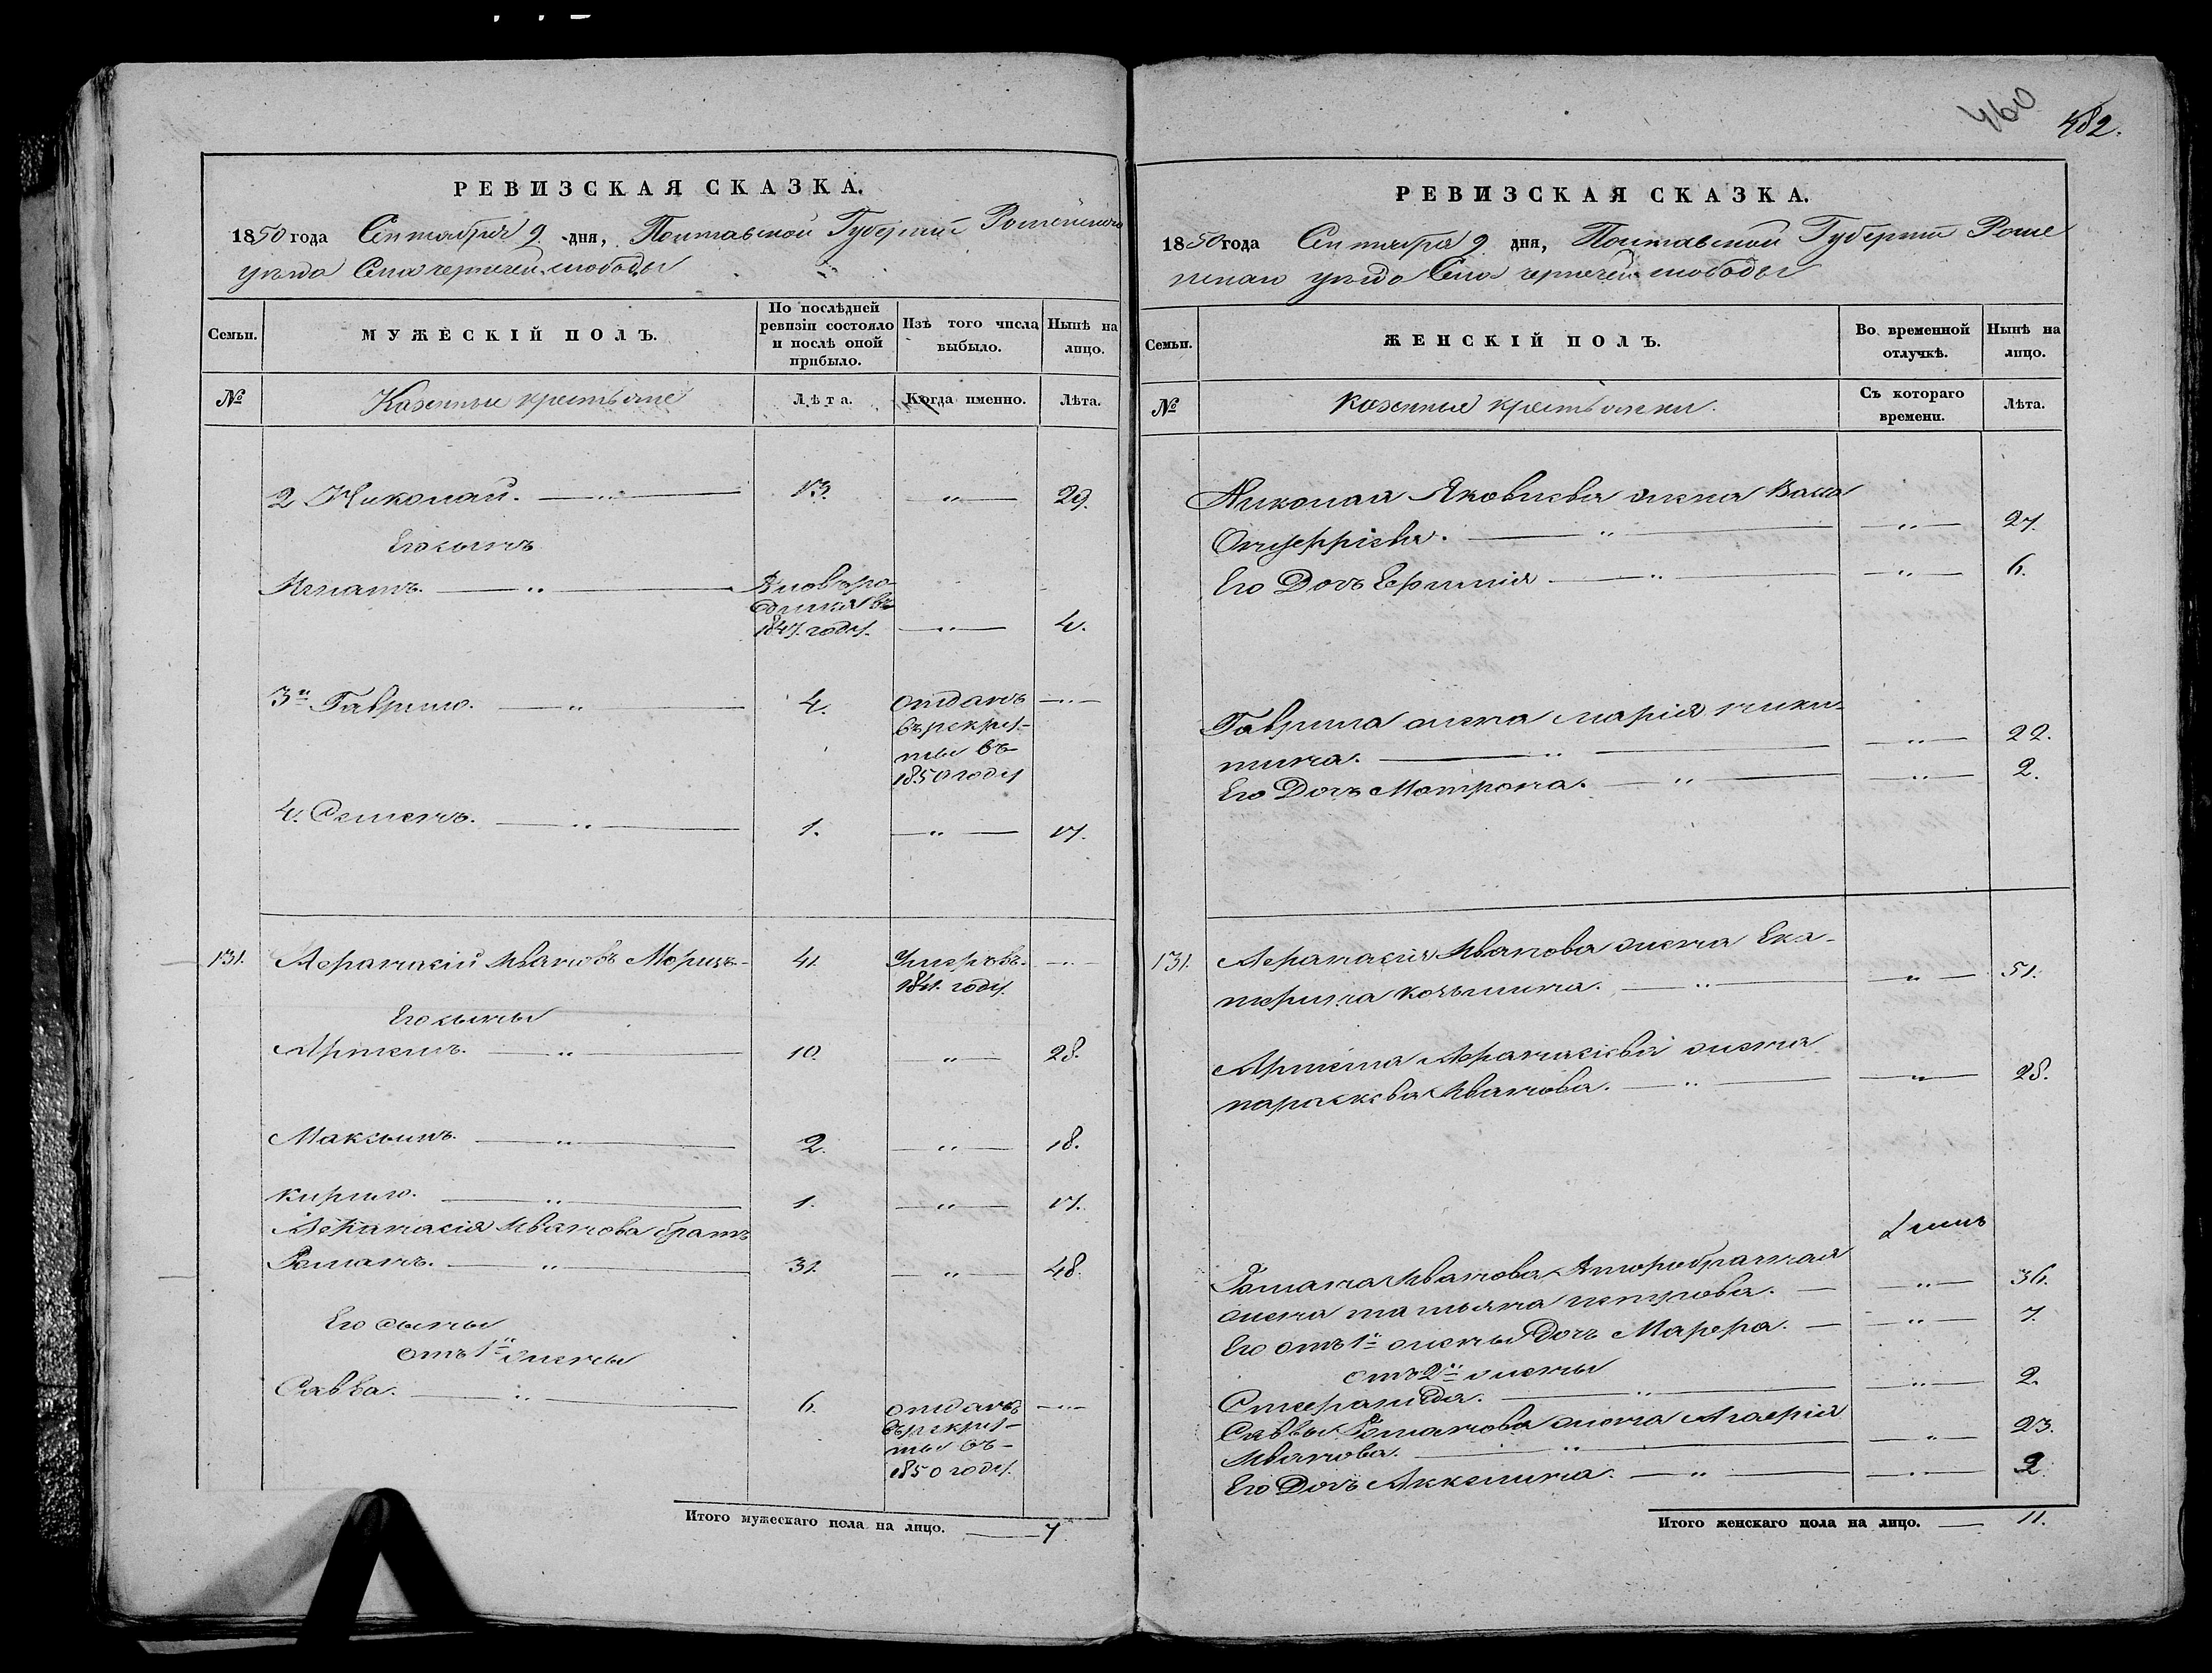 РЕВИЗСКАЯ СКАЗКА.
1850 года Сентября 9 дня, Полтавской Губерніи Роменскаго
уѣзда Села чернечей слободы
Семьи.
МУЖЕСКІЙ ПОЛЪ.
По послѣдней ревизіи состояло и послѣ оной прибыло.
Изъ того числа выбыло.
Нынѣ на лицо.
№
Казенные крестьяне
Лѣта.
Когда именно.
Лѣта.
2 Николай. 13. 29.
Его сынъ
Игнатъ. Вновь ро-
дился въ
1847. году. 4.
3й Гаврило. 4. отданъ
въ рекру-
ты въ
1850 году
4. Семенъ. 1. 17.
131. Афанасій Ивановъ 41. Умеръ въ
1841. году.
Его сыны
Артемъ. 10. 28.
Максымъ. 2. 18.
Кирило. 1. 17.
Афанасія Иванова братъ
Романъ. 31. 48.
Его сыны
отъ 1й жены
Савва. 6. отданъ
въ рекру-
ты въ
1850 году.
Итого мужескаго пола на лицо. 7
460
482.
РЕВИЗСКАЯ СКАЗКА.
1850 года Сентября 9 дня, Полтавской Губерніи Роме
уѣзда Села чернечей слободы
Семьи.
ЖЕНСКІЙ ПОЛЪ.
Во временной отлучкѣ.
Нынѣ на лицо.
№
Казенные крестьянки.
Съ котораго времени.
Лѣта.
Николая Яковлева жена Васса
Онуфріева. 27.
Его Дочь Ефимія 6.
Гаврила жена марія ники-
тина. 22.
Его Дочь Матрона. 2.
131. Афанасія Иванова жена Ека-
терина козьмина. 51.
Артема Афанасіева жена
параскева Иванова. 28.
Романа Иванова Второбрачная
жена татьяна петрова. 36.
Его отъ 1й жены Дочь Марфа. 7.
отъ 2й жены
Стефанида. 2.
Саввы Романова жена Агафія
Иванова. 23.
Его Дочь Аккелина. 2
Итого женскаго пола на лицо. 11.